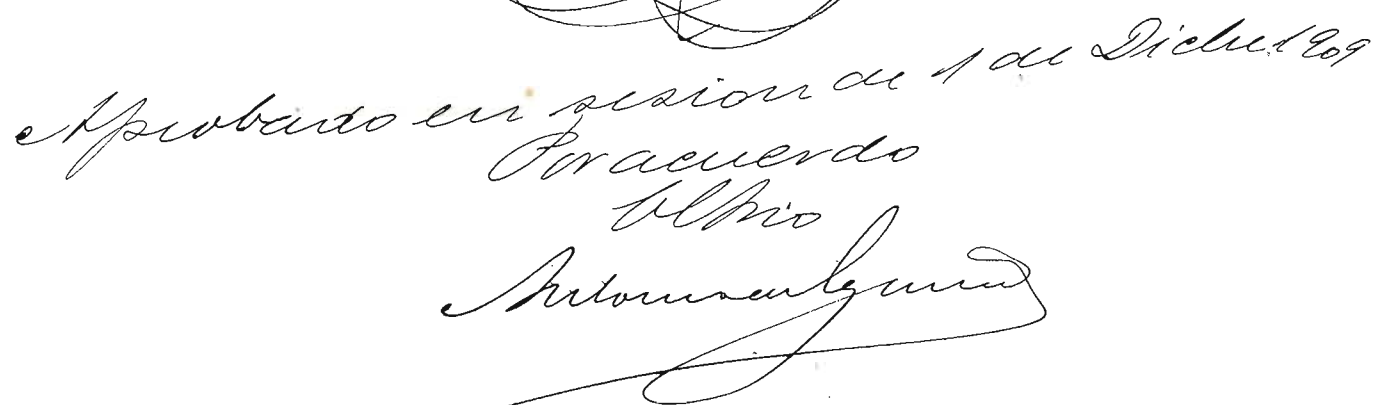 Aprobado en sesion de 1 de Dicbre 1909
Por acuerdo
El Srio
Antonio de